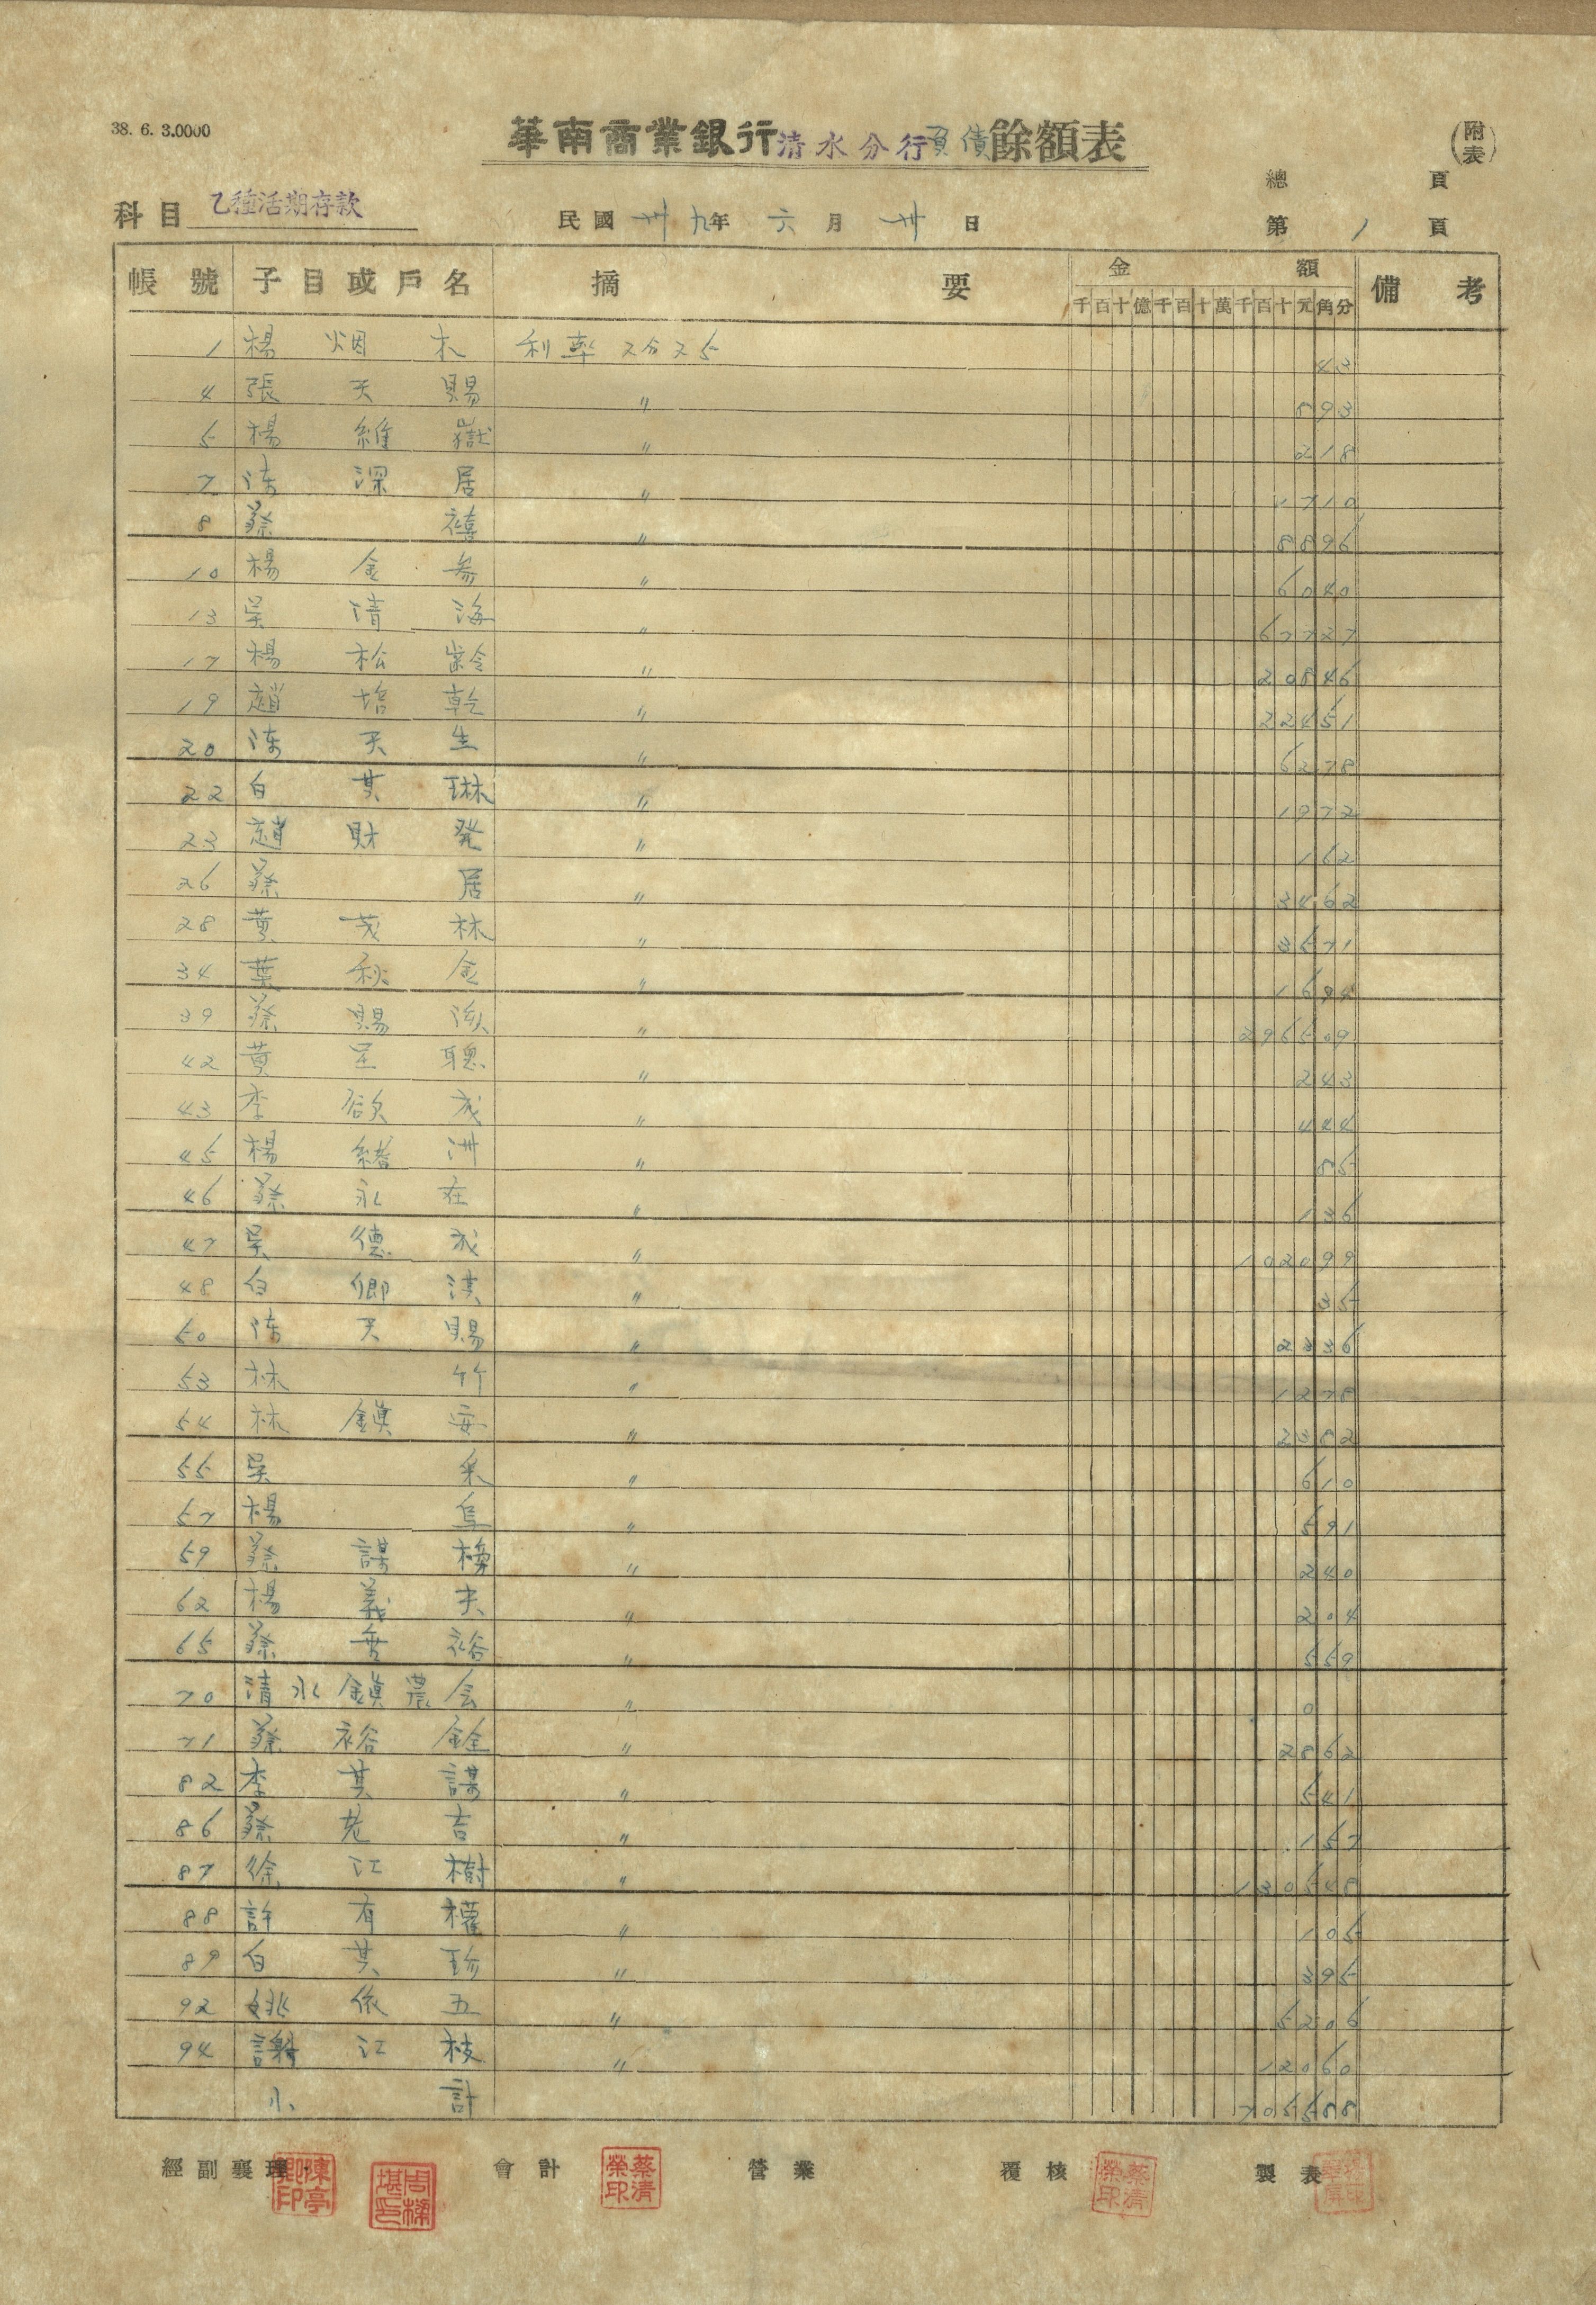 38. 6. 3.0000
華南商業銀行清水分行負債餘額表
(附表)
總 頁
科目 乙種活期存款 民國 卅九年 六月 卅日 第 1 頁
帳號 子目或戶名 摘要 金額 備考
千百十億千百十萬千百十元角分
1 楊烟木 利率2分25 43
4 張天賜 〃 893
5 楊維嶽 〃 218
7 陈深居 〃 1710
8 蔡禧 〃 8896
10 楊金参 〃 6040
13 吴清海 〃 67727
17 楊松齡 〃 20846
19 趙培乾 〃 22451
20 陈天生 〃 6278
22 白其琳 〃 1972
23 趙財発 〃 162
26 蔡居 〃 3462
28 黄茂林 〃 3571
34 葉秋金 〃 1694
39 蔡賜 〃 296509
42 黄呈聰 〃 243
43 李欲成 〃 444
45 楊緒洲 〃 85
46 蔡永在 〃 136
47 吴德成 〃 102099
48 白卿淇 〃 35
50 陈天賜 〃 2336
53 林竹 〃 1278
54 林鎮安 〃 2382
55 吴采 〃 610
57 楊隼 〃 591
59 蔡謀 〃 240
62 楊義夫 〃 204
65 蔡裕 〃 559
70 清水鎮農会 〃 0
71 蔡裕銓 〃 2862
82 李其謀 〃 541
86 蔡老吉 〃 157
87 徐江樹 〃 130548
88 許有權 〃 105
89 白其珍 〃 395
92 姚依五 〃 5206
94 謝江枝 〃 12060
小計 705588
經副襄理 陳亭卿印 會計 蔡清榮印 營業 覆核 蔡清榮印 製表